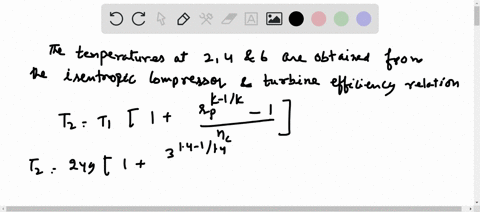 The tenperatures at 2, 4 & 6 are obtained from
the isentropic compressor & turbine efficiency relation
T₂ = T₁ [ 1 + (rp^(k-1/k) - 1)/ηc ]
T₂ = 249 [ 1 + 3^(1.4-1/1.4)